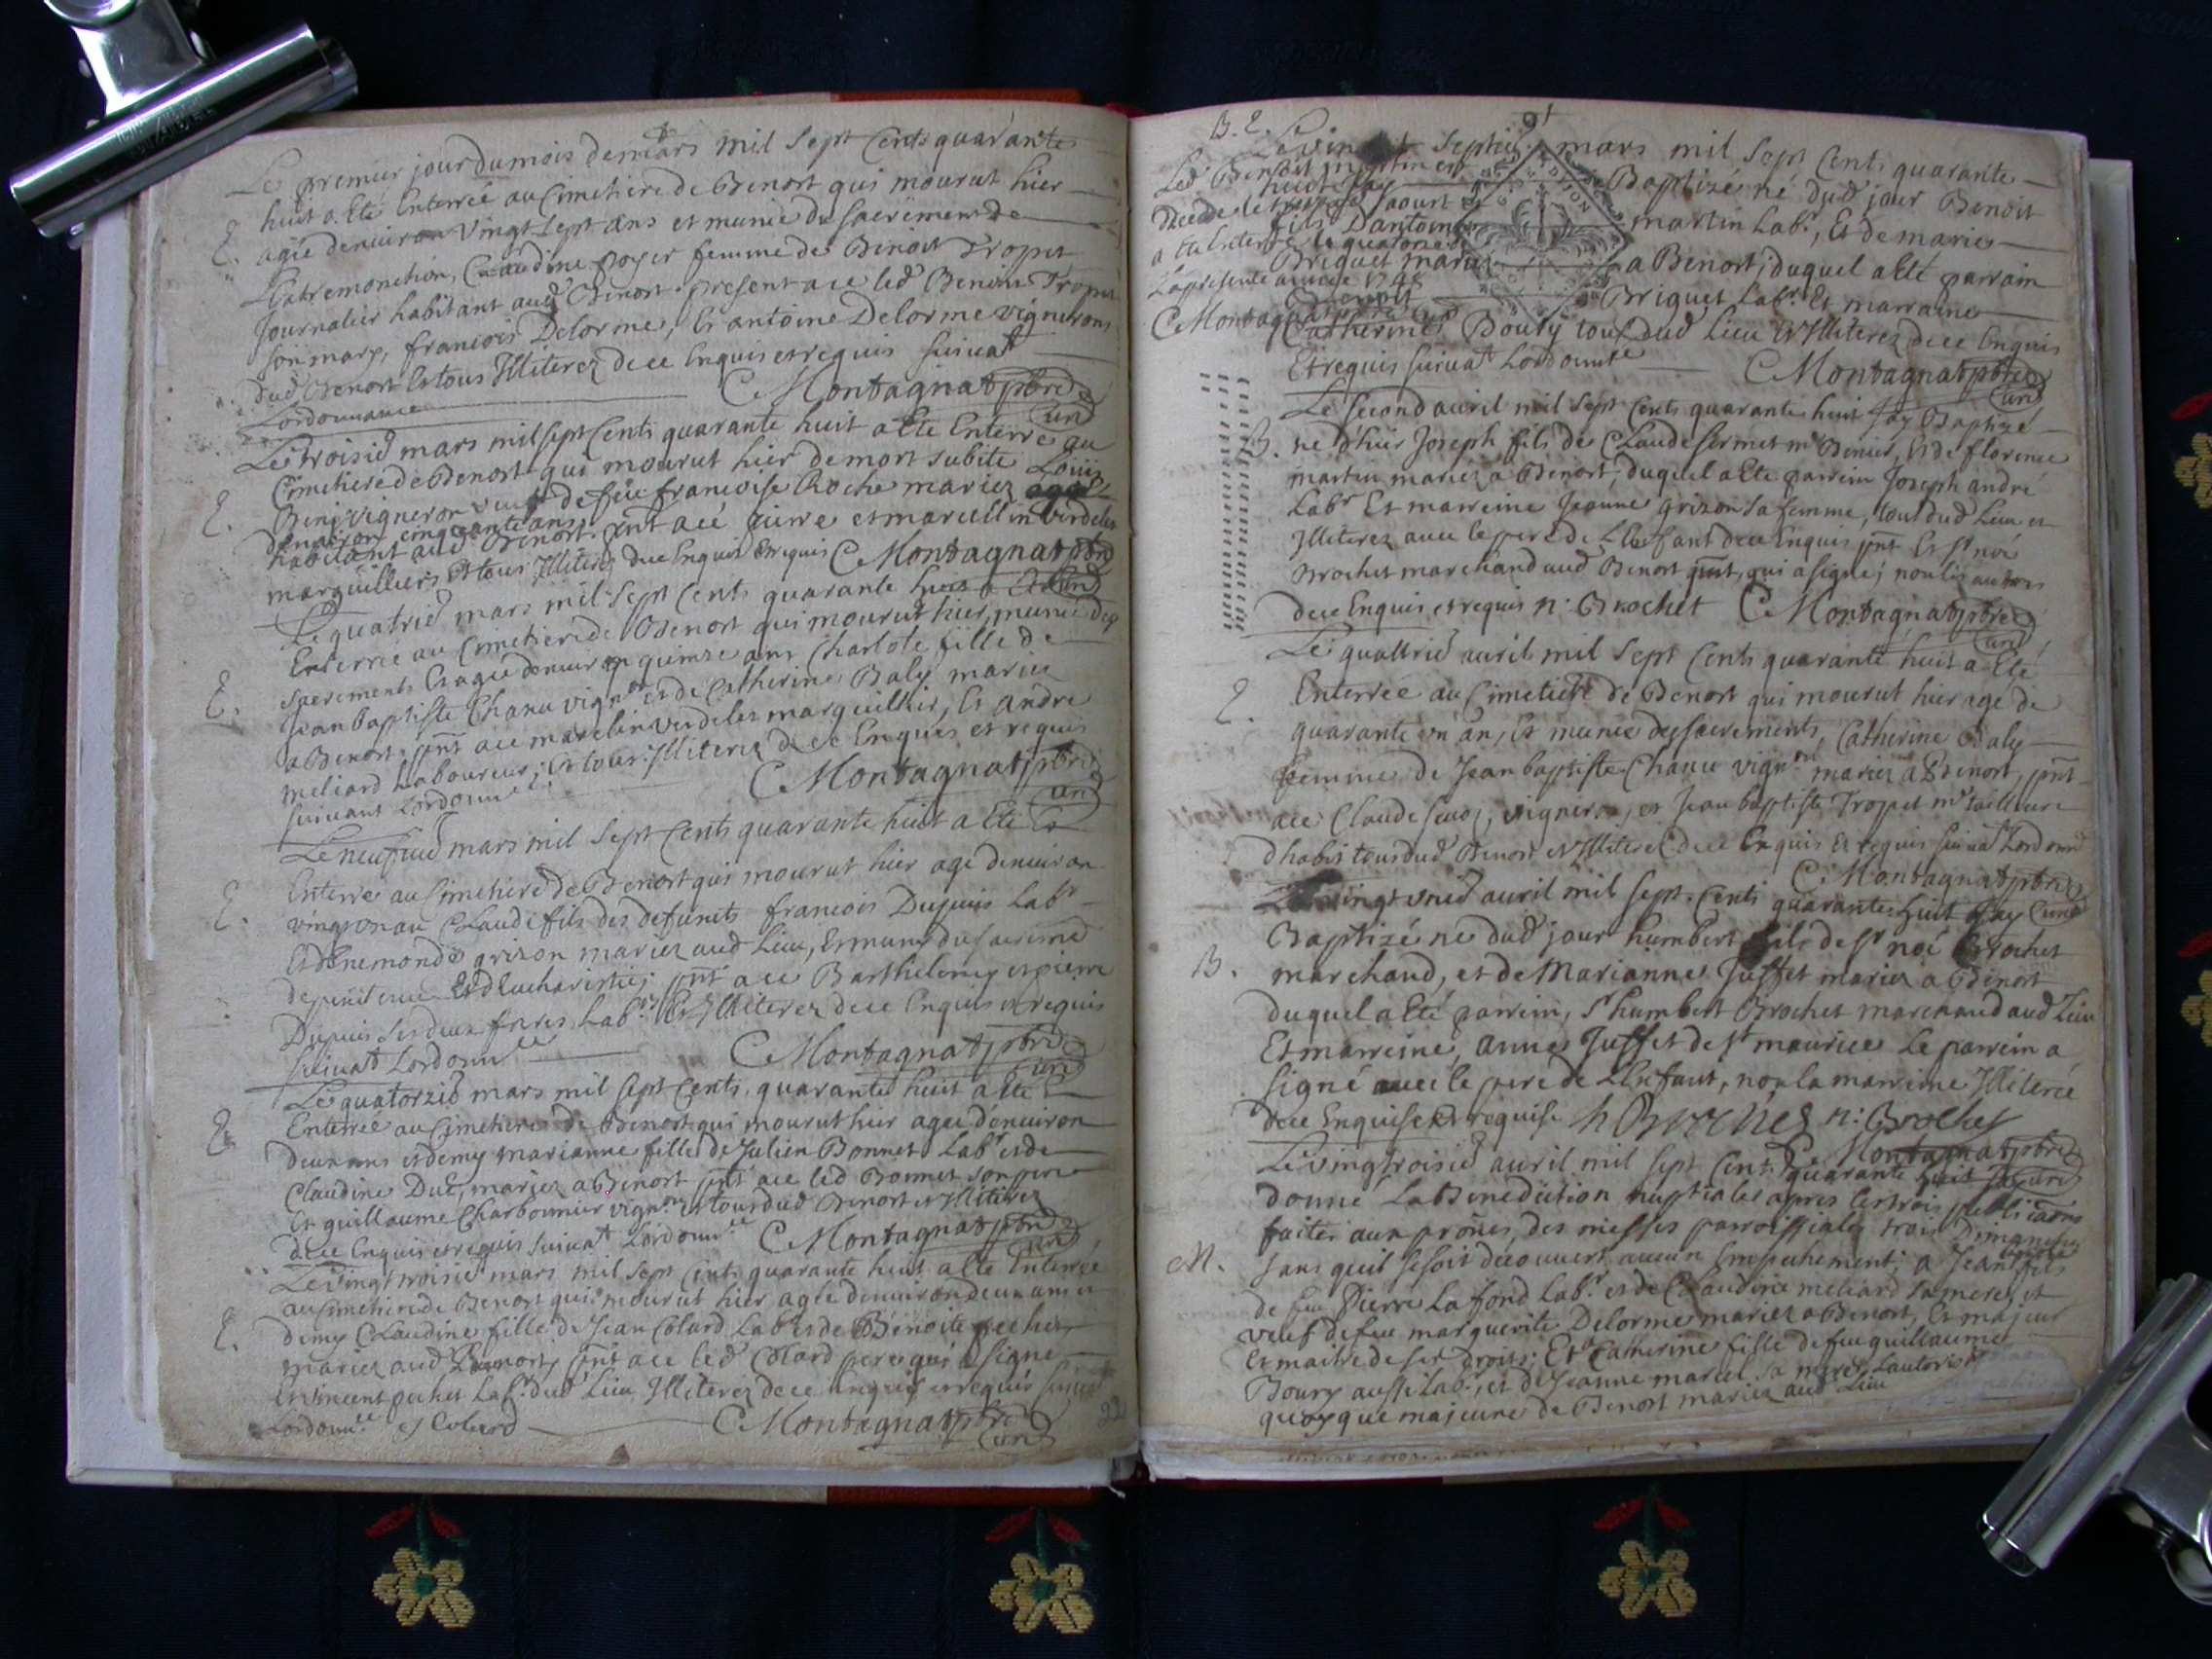 Le premier jour du mois de mars mil sept Cents quarante
huit a Eté Enterrée au Cimetiere de Benort qui mourut hier
E. agée denuiron vingt sept ans et munie du sacrement de
Lextremonction, Claudine poyer femme de Benoit Tropet
Journalier habitant aud Benort present ace led Benoit Tropet
son mary, francois Delorme, Et antoine Delorme vignerons
dud Benort Et tous Illiterez dece Enquis et requis suiuat
Lordonnance C Montagnat pbre
curé
Le troisie mars mil sept Cents quarante huit a Ete Enterré au
Cimetiere de Benort qui mourut hier de mort subite Louis
E. vigneron veuf de feüe francoise Roche mariez agé
denuiron cinquante ans
habitant aud Benort pnt acé pierre et marcellin verdelet
marguilliers Et tous Illiterez dece Enquis Et requis C Montagnat pbre
Le quatrie mars mil sept Cents quarante huit a Eté curé
Enterrée au Cimetiere de Benort qui mourut hier munie des
E. sacrements Et agée denuiron quinze ans Charlote fille de
Jean baptiste Chanu vignon et de Catherine Baly mariez
a Benort, pnt ace marcelin verdelet marguillier, Et andre
meliard Laboureur, Et tous Illiterez dece Enquis et requis
suiuant Lordonnce C Montagnat pbre
curé
Le neufuie mars mil sept Cents quarante huit a Eté
Enterré au Cimetiere de Benort qui mourut hier agé denuiron
E. vingt un an Claude fils des defunts francois Dupuis Labr
Et Enemonde grizon mariez aud Lieu, Et muni du sacreme
de penitence Et dEucharistie; pnt ace Barthelemy et pierre
Dupuis ses deux freres Labrs Et Illiterez dece Enquis et requis
suiuat Lordonnce C Montagnat pbre
curé
Le quatorzie mars mil sept Cents quarante huit a Eté
E. Enterrée au Cimetiere de Benort qui mourut hier agée denuiron
deux ans et demy marianne fille de Julien Bonnet Labr et de
Claudine Duc, mariez a Benort pnt ace led Bonnet son pere
Et guillaume Charbonnier vignon Et tous dud Benort et Illiterez
dece Enquis et requis suiuat Lordonnce C Montagnat pbre
curé
Le vingt troisie mars mil sept Cents quarante huit a Eté Enterrée
au Cimetiere de Benort qui mourut hier agée denuiron deux ans et
E. demy Claudine fille de Jean Colard Labr et de Benoite pechet
mariez aud Benort, pnt ace led Colard pere qui a signe
Et vincent pechet Labr dud Lieu, Illiterez dece Enquis et requis suiuat
Lordonnce J Colard C Montagnat pbre
curé
B. E. Le vingt septie mars mil sept Cents quarante
huit Jay Baptizé né dud jour Benoit
fils Dantoine martin Labr, Et de marie
Briquet mariez a Benort; duquel a Eté parrain
Briquet Labr Et marraine
Catherine Bouly tous dud Lieu Et Illiterez dece Enquis
Et requis suiuat Lordonnce C Montagnat pbre
curé
Led Benoit martin est
decedé le treize aoust
a Eté Enterré le quatorze
La presente année 1748
C Montagnat
Le second auril mil sept Cents quarante huit Jay Baptizé
B. ne d'hier Joseph fils de Claude sermet mr Benier, Et de florence
martin mariez a Benort, duquel a Eté parrein Joseph andré
Labr Et marreine Jeanne grizon sa femme, tous dud Lieu et
Illiterez auec le pere de L'Enfant dece Enquis pnt Et sr noé
Brochet marchand aud Benort pnt, qui a signé; non les autres
dece Enquis et requis n: Brochet C Montagnat pbre
curé
Le quattrie auril mil sept Cents quarante huit a Eté
E. Enterrée au Cimetiere de Benort qui mourut hier agé de
quarante un an, Et munie des sacrements, Catherine Baly
femme de Jean baptiste Chanu vignon mariez a Benort, pnt
ace Claude vigneron, et Jean baptiste Tropet mr tailleur
dhabis tous dud Benort et Illiterez dece Enquis Et requis suiuat Lordonnce
C Montagnat pbre
Le vingt unie auril mil sept Cents quarante huit Jay curé
Baptizé né dud jour humbert fils de sr noé Brochet
B. marchand, et de Marianne Juffet mariez a Benort
duquel a Eté parrein, sr humbert Brochet marchand aud Lieu
Et marreine, anne Juffet de st maurice Le parrein a
signé auec le pere de L'Enfant, non la marreine Illiterée
dece Enquise et requise h Brochet n: Brochet
C Montagnat pbre
Le vingt troisie auril mil sept Cents quarante huit Jay curé
donné La Benediction nuptiale apres les trois publicaons
faites aux prones, des messes parroissiales trois Dimanches
M. sans quil se soit decouuert aucun Empechement; a Jean fils
de feu Pierre Lafond Labr et de Claudine meliard sa mere, et
veuf de feu marguerite Delorme mariez a Benort, Et majeur
Et maitre de ses Droits; Et a Catherine fille de feu guillaume
Boury aussi Labr, et de Jeanne marcel sa mere, Lautorise
quoyque majeure de Benort mariez aud Lieu